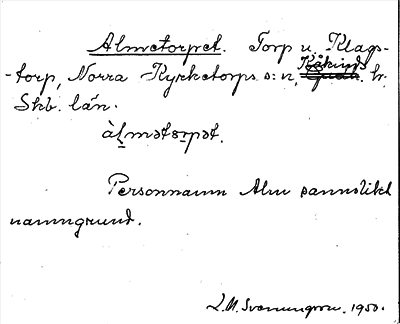 Almetorpet. Torp u. Klags-
-torp, Norra Kyrketorps s:n, Kåkinds hr.
Skb. län.
àl̠mət𐑥r̠pət.
Personnamn Alm sannolikt
namngrund.
1950.